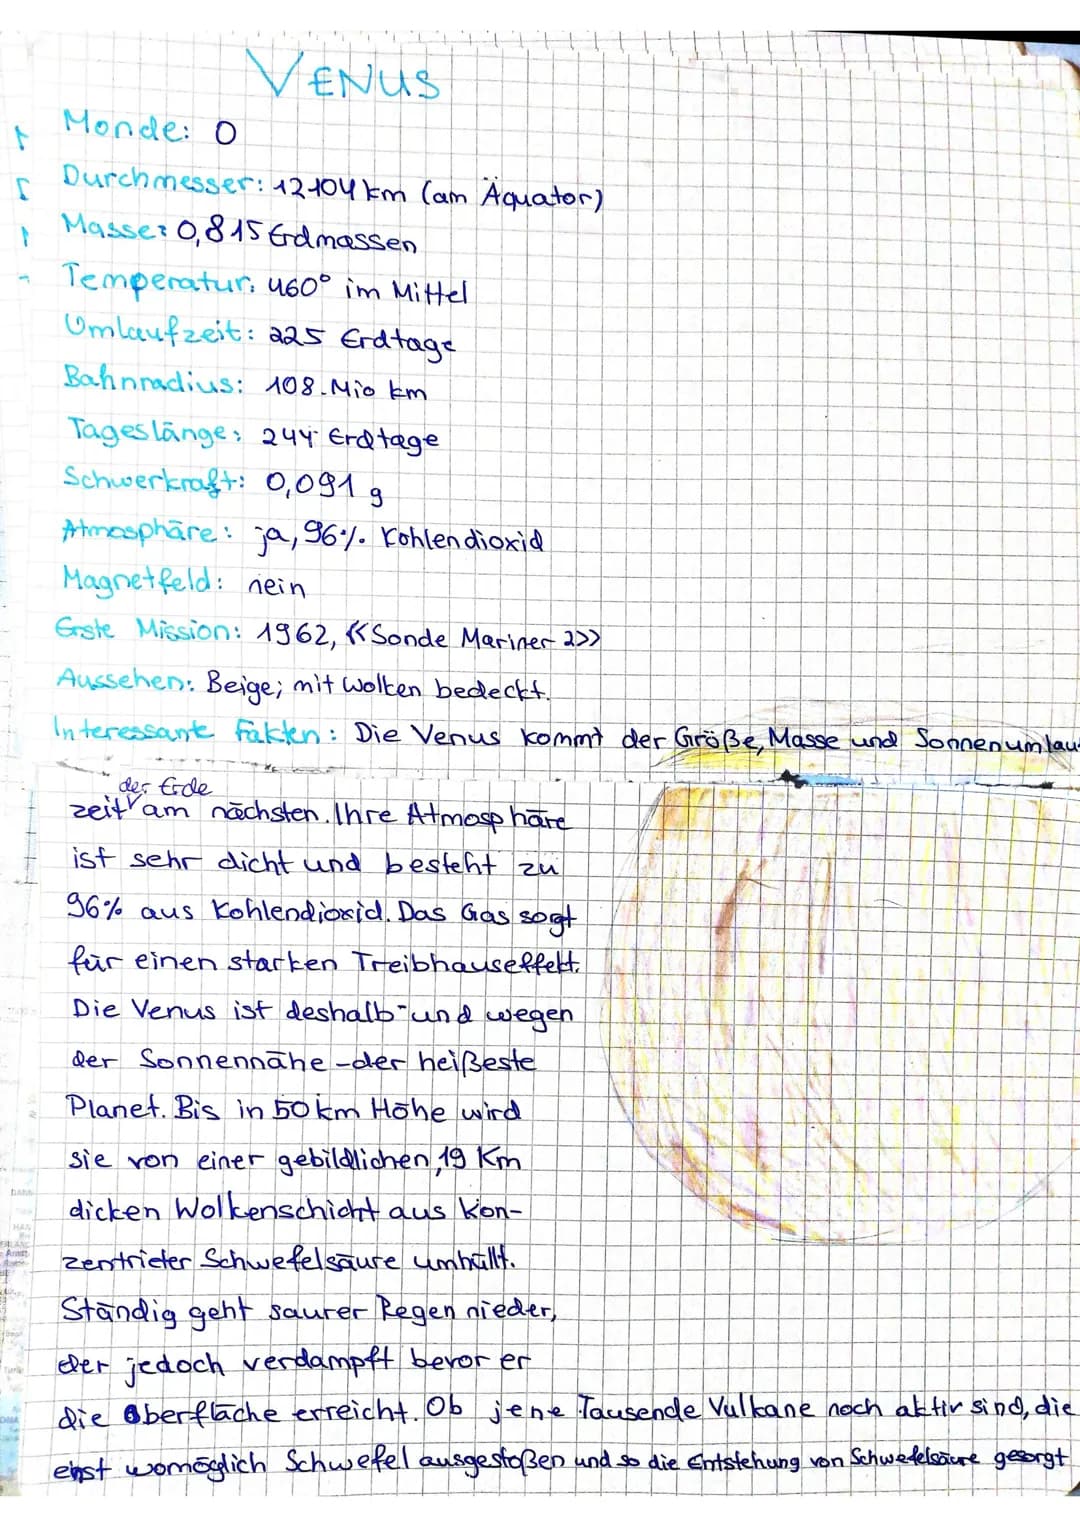 VENUS
Monde: 0
Durchmesser: 12104 km (am Äquator)
Masse: 0,815 Erdmassen
Temperatur: 460° im Mittel
Umlaufzeit: 225 Erdtage
Bahnradius: 108 Mio km
Tageslänge: 244 Erdtage
Schwerkraft: 0,091 g
Atmosphäre: ja, 96% Kohlendioxid
Magnetfeld: nein
Erste Mission: 1962, «Sonde Mariner 2»
Aussehen: Beige; mit Wolken bedeckt.
Interessante Fakten: Die Venus kommt der Größe, Masse und Sonnenumlauf-
der Erde
zeit am nächsten. Ihre Atmosphäre
ist sehr dicht und besteht zu
96% aus Kohlendioxid. Das Gas sogt
für einen starken Treibhauseffekt.
Die Venus ist deshalb - und wegen
der Sonnennähe - der heißeste
Planet. Bis in 50 km Höhe wird
sie von einer gebildlichen, 19 Km
dicken Wolkenschicht aus kon-
zentrieter Schwefelsäure umhüllt.
Ständig geht saurer Regen nieder,
der jedoch verdampft bevor er
die Oberfläche erreicht. Ob jene Tausende Vulkane noch aktiv sind, die
einst womöglich Schwefel ausgestoßen und so die Entstehung von Schwefelsäure gesorgt